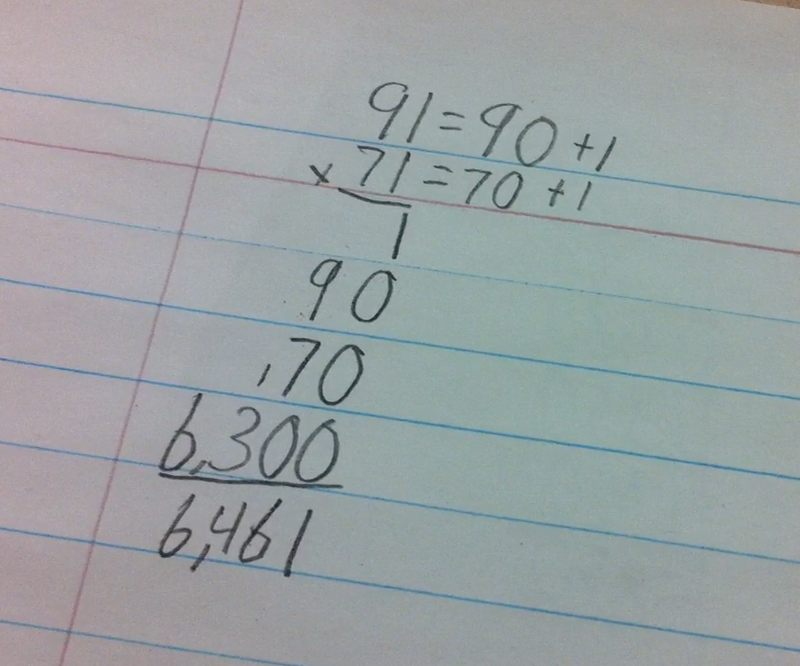 91=90+1
x 71=70+1
1
90
,70
6,300
6,461